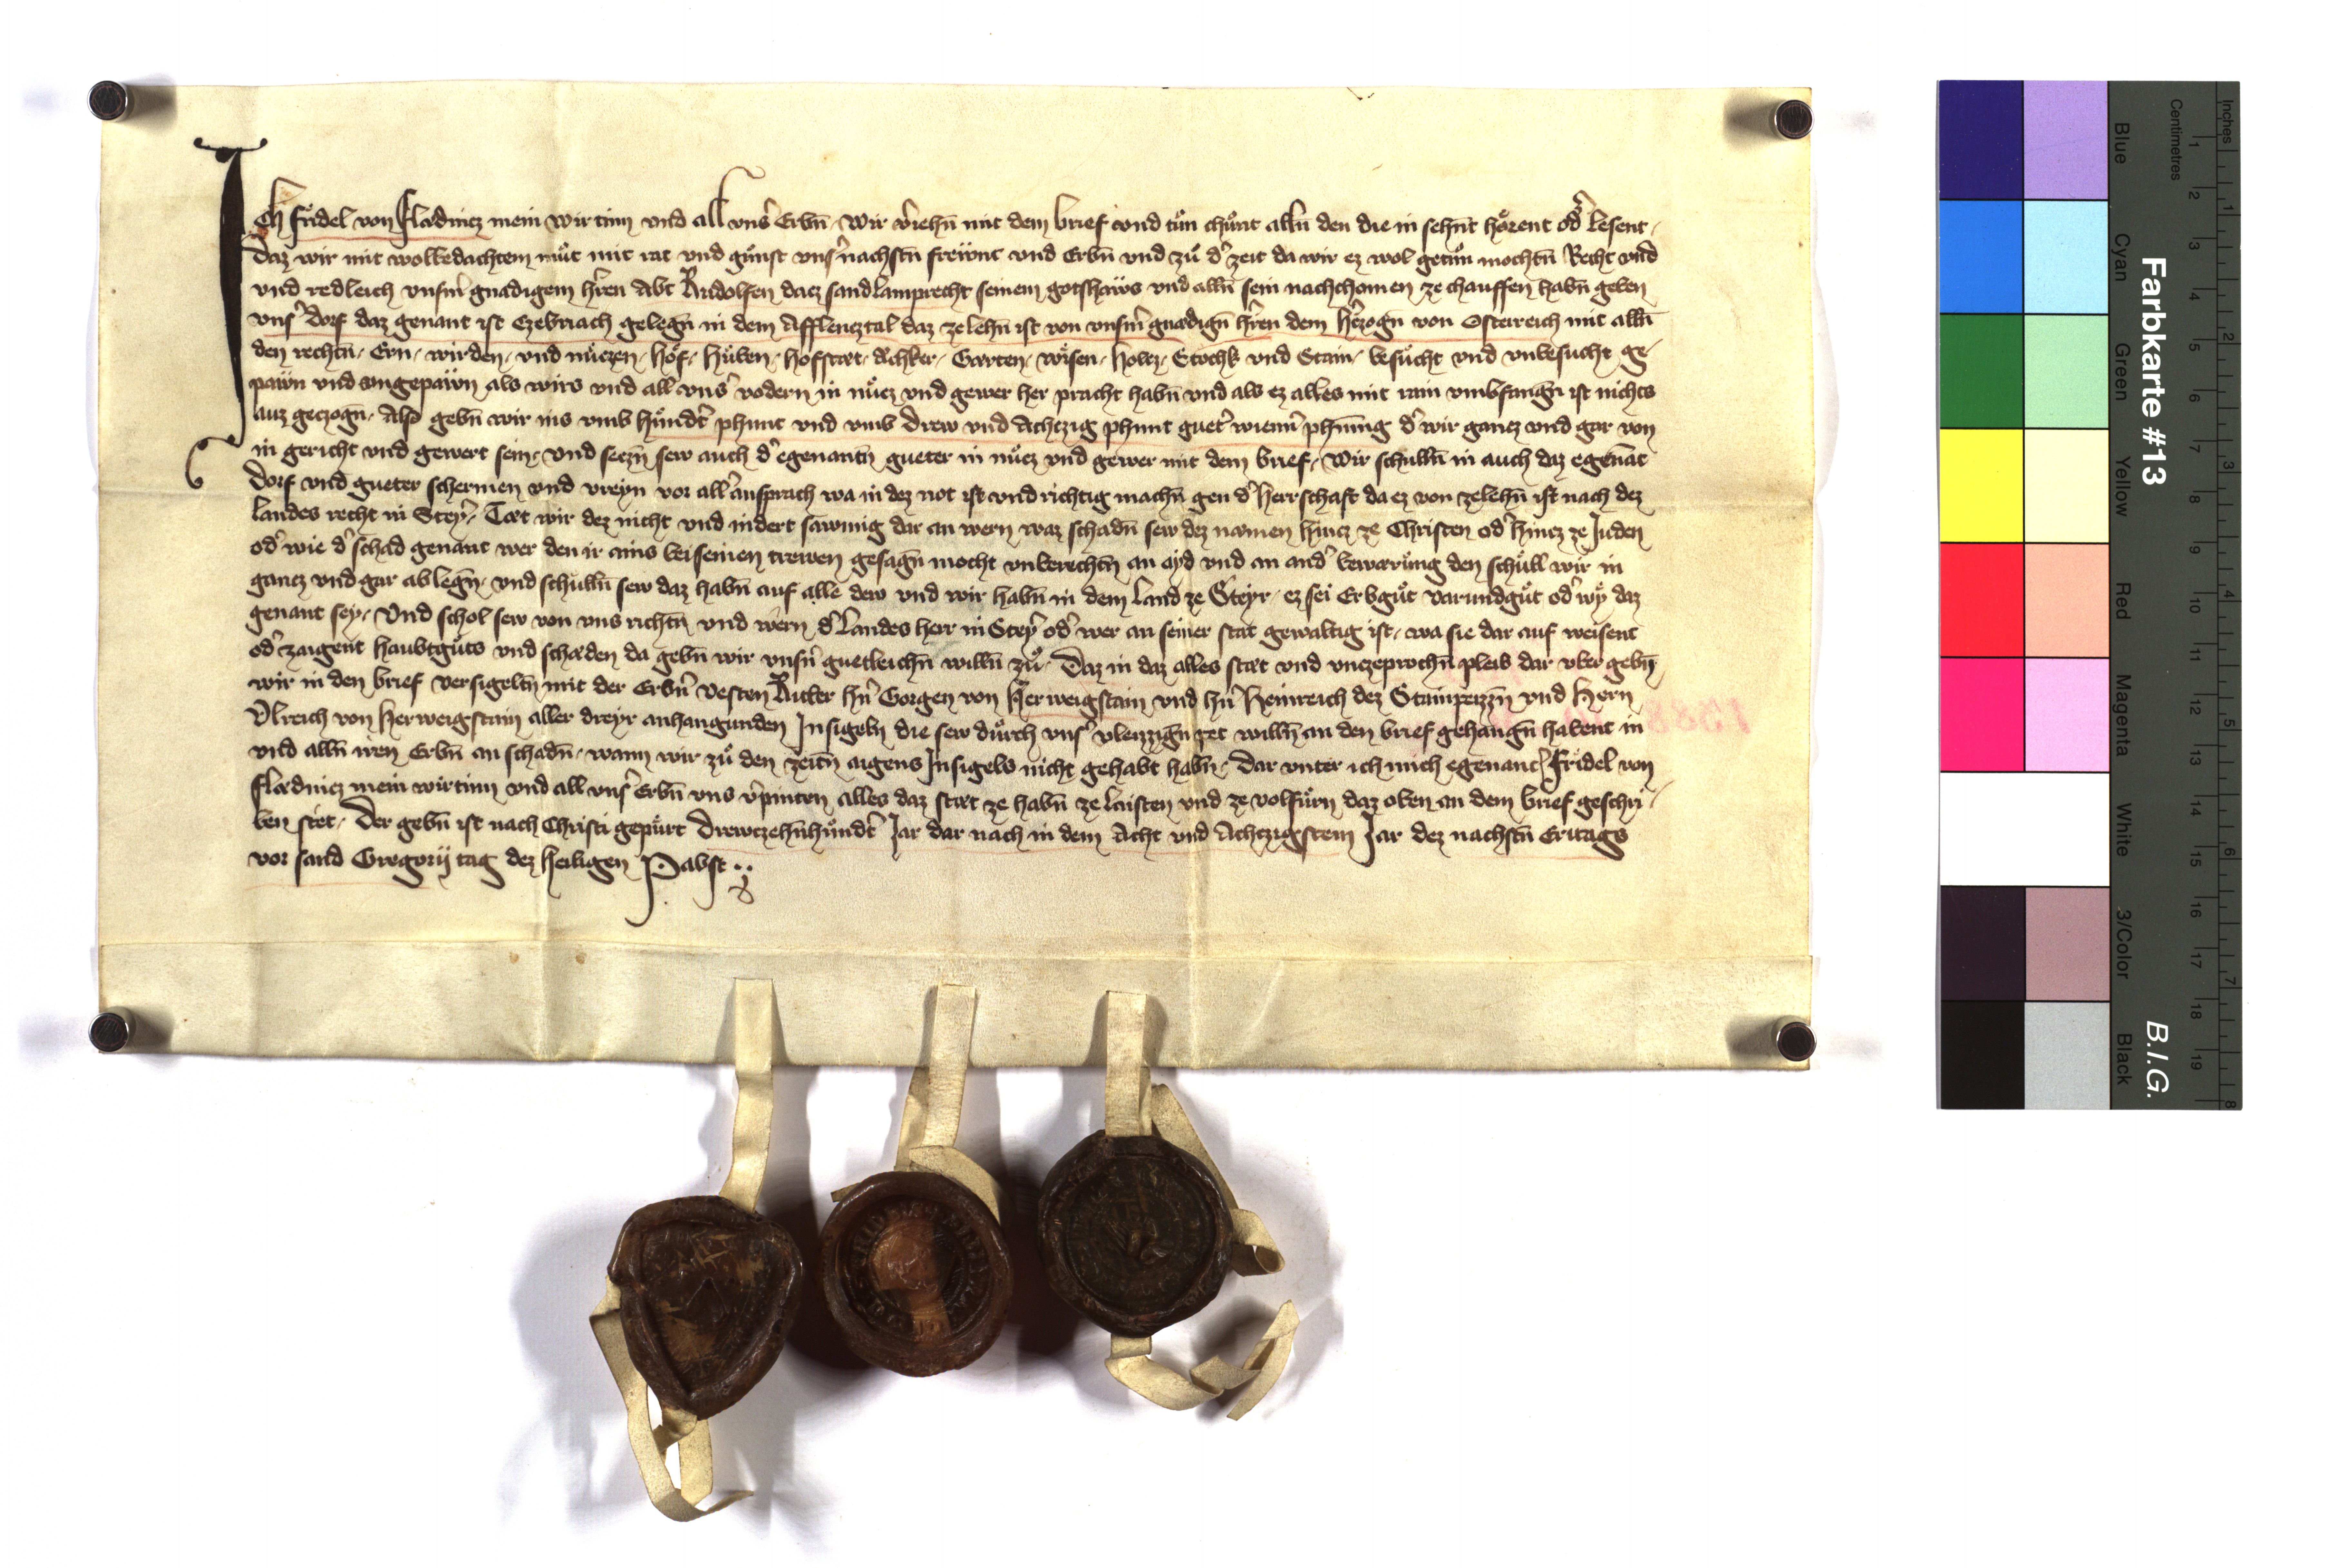 Ich Fridel von Flaͤdnicz mein wirtinn vnd all vnsˀ Erbn̄ Wir vˀiehn̄ mit dem brief vnd tuͤn chuͤnt alln̄ den die in sehn̄t hoͤrent odˀ lesent
Daz wir mit wolbedachtem muͦt mit rat vnd guͤnst vnsˀ nachstn̄ frewnt vnd Erbn̄ vnd zuͦ dˀ zeit da wir ez wol getuͦn mochtn̄ Recht vnd
vnd redleich vnsm̄ gnadigem hˀren Abt Rudolfen dacz sand Lamprecht seinem gotshaws vnd alln̄ sein nachchomen ze chauffen habn̄ geben
vnsˀ dorf daz genant ist Czebriach gelegn̄ in dem Afflencztal daz ze lehn̄ ist von vnsm̄ gnaͤdign̄ hˀren dem hˀczogn̄ von Osterreich mit alln̄
den rechtn̄ Ern wirden vnd nuͤczen hoͤf huͤben hofstaet aͤchker Gaerten wisen holcz Stochk vnd Stain besuͤcht vnd vnbesucht ge
pawn vnd vngepawn als wirs vnd all vnsˀ vodern in nuͤcz vnd gewer her pracht habn̄ vnd als ez alles mit rain vmbfangn̄ ist nichts
auz geczogn̄ Also gebn̄ wir ins vmb huͤndˀt phunt vnd vmb drew vnd Achczig phunt guetˀ wiennˀ phn̄nig dˀ wir gancz vnd gar von
in gericht vnd gewert sein Vnd seczn̄ sew auch dˀ egenantn̄ gueter in nuͤcz vnd gewer mit dem brief Wir schulln̄ in auch daz egenāt
dorf vnd gueter schermen vnd vreyn vor allˀ ansprach wa in dez not ist vnd richtig machn̄ gen dˀ herrschaft da ez von ze lehn̄ ist nach dez
landes recht in Steyrˀ Taet wir dez nicht vnd indert sawmig dar an wern waz schadn̄ sew dez namen hincz ze Christen odˀ hincz ze Juden
odˀ wie dˀ schad genant wer den ir ains bei seinen trewen gesagn̄ mocht vnberechtn̄ an ayd vnd an andˀ bewaͤruͤng den schuͤll wir in
gancz vnd gar ablegn̄ vnd schulln̄ sew daz habn̄ auf alle dew vnd wir habn̄ in dem land ze Steyr ez sei Erbguͦt varundguͦt odˀ wy daz
genant sey Vnd schol sew von vns richtn̄ vnd wern dˀ Landes herr in Steyrˀ odˀ wer an seiner stat gewaltig ist wa sie dar auf weisent
odˀ zaigent haubtguͦts vnd schaͤden da gebn̄ wir vnsn̄ guetleichn̄ willn̄ zuͦ Daz in daz alles staet vnd vnczeprochn̄ pleib dar vber gebn̄
wir in den brief Versigeltn̄ mit der Erbn̄ vesten Ritter hn̄ Gorgen von Herweigstain vnd hn̄ Heinreich dez Stainpeizzn̄ vnd hern
Vlreich von Herweigstain aller dreyr anhangunden Insigeln die sew duͤrch vnsˀ vleizzign̄ pet willn̄ an den brief gehangn̄ habent in
vnd alln̄ iren Erbn̄ an schadn̄ wann wir zuͦ den zeitn̄ aigens Insigels nicht gehabt habn̄ Dar vnter ich mich egenantˀ Fridel von
Flaͤdnicz mein wirtinn vnd all vnsˀ Erbn̄ vns vˀpinten alles daz staet ze habn̄ ze laisten vnd ze volfuͤrn daz oben an dem brief geschri
ben stet Der gebn̄ ist nach Christi gepuͤrt Drewczehn̄huͤndˀt Jar dar nach in dem Acht vnd Achczigstem Jar dez nachstn̄ Eritags
vor sand Gregorij tag dez heiligen Pabst
Farbkarte #13
B.I.G.
Inches
Centimetres
Blue
Cyan
Green
Yellow
Red
Magenta
White
3/Color
Black
1 2 3 4 5 6 7 8 9 10 11 12 13 14 15 16 17 18 19
1 2 3 4 5 6 7 8